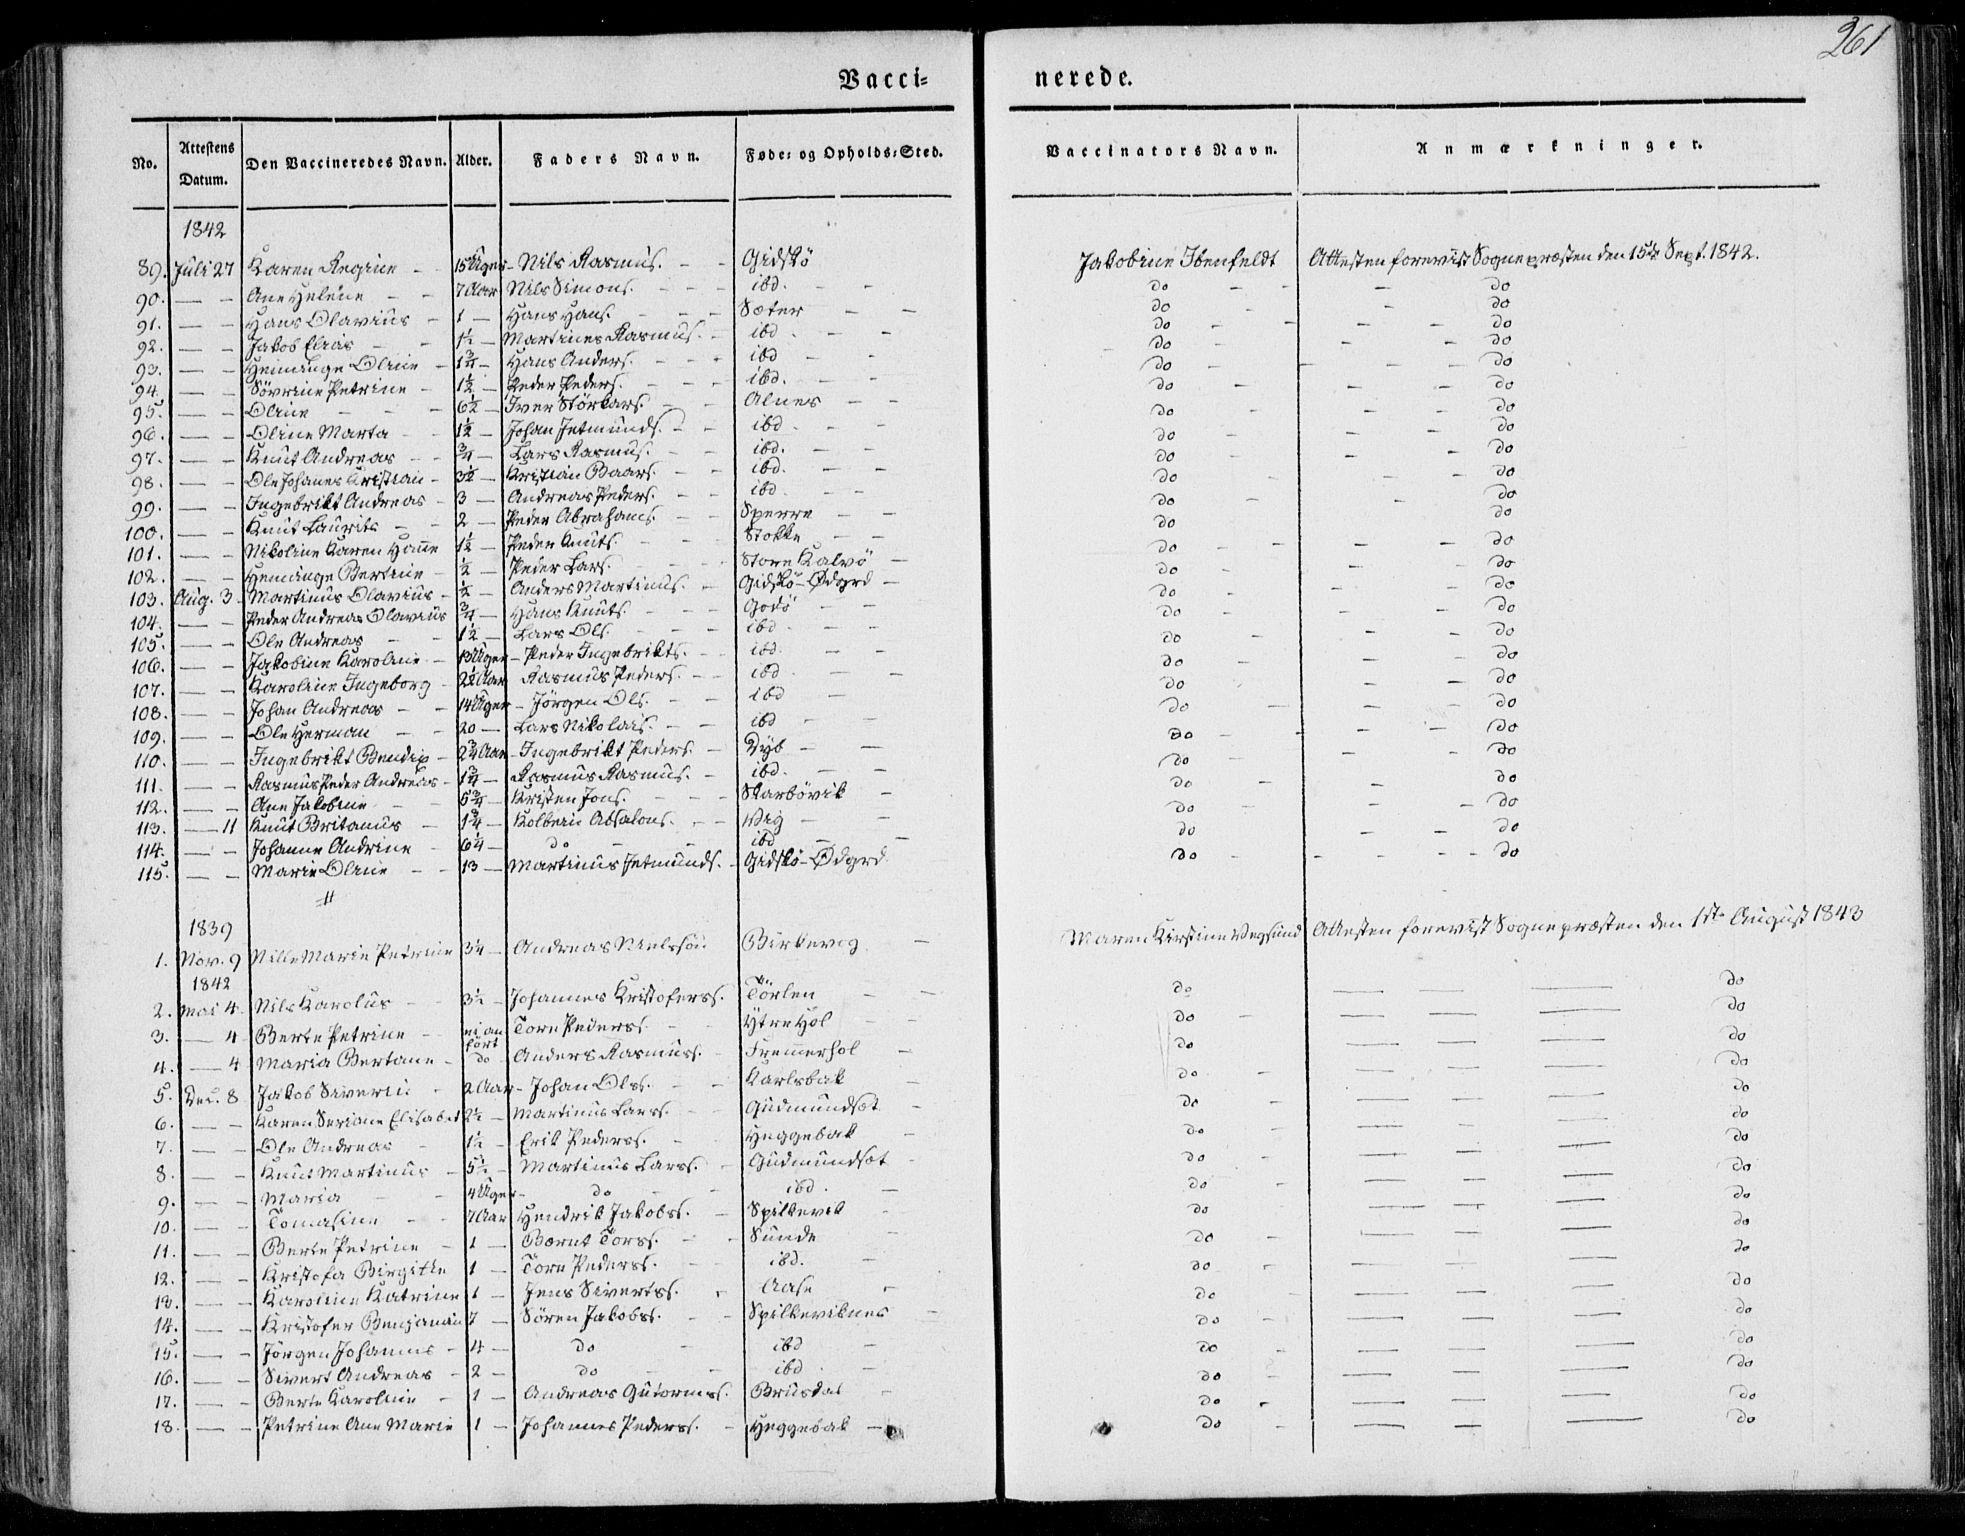 261
Vacci= nerede.
No. Attestens Datum. Den Vaccineredes Navn. Alder. Faders Navn. Føde= og Opholds=Sted. Vaccinators Navn. Anmærkninger.
1842
89. Juli 27 Karen Regine - 15 Uger - Nils Rasmus. - - Gidskö Jakobine Ibenfeldt Attesten forevist Sognepræsten den 15de Sept. 1842.
90. — - Ane Helene - - 7 Aar Nils Simons. - - - ibd. - - do - - - do
91. — - Hans Olavius - 1 — Hans Hans. - - - Sæter - - do do
92. — - Jakob Elias - - 1½ — Martines Rasmus. - ibd. - - do - - - - do
93. — - Hemminge Oline - 1¾ — Hans Anders. - - - ibd - - do - - do
94. — - Sövrine Petrine - 1½ — Peder Peders. - - - ibd. - - do - - - - - do
95. — - Oline - - - 6½ — Iver Störkars. - - Alnes - - do - - - do
96. — - Oline Marta - - 1½ — Johan Jetmunds. - - ibd. - - do - - - do
97. — - Knut Andreas - - ¾ — Lars Rasmus. - - ibd. - - do - - - do
98. — - Ole Johanes Kristian - 3½ — Kristian Baars. - - ibd. - - do - - - do
99. — - Ingebrikt Andreas - 3 — Andreas Peders. - - ibd. - - do - - do
100. — - Knut Laurits - - 2 — Peder Abrahams. - - Sperre - - do - - do
101. — - Nikoline Karen Hanne 1½ — Peder Knuts. - - - Stokke - - do do
102. — - Heminge Bertine - ½ — Peder Lars. - - - Store Kalvö - do - - - - do
103. Aug. 3 Martinus Olavius - ½ — Anders Martinus. - Gidskö-Ödgrd - do - - do
104. — - Peder Andreas Olavius ¾ — Hans Knuts. - - - Godö - - do - - - do
105. — - Ole Andreas - - 1½ — Lars Ols. - - - ibd - - do - - do
106. — - Jakobine Karoline - 13 Uger - Peder Ingebrikts. - - ibd. - - do - - - do
107. — - Karoline Ingeborg - 2½ Aar Rasmus Peders. - - ibd - - do - - do
108. — - Johan Andreas - - 14 Uger - Jörgen Ols. - - ibd - do - - do
109. — - Ole Herman - - 20 — Lars Nikolais. - - ibd - - do - - - do
110. — - Ingebrikt Bendix - 2¾ Aar - Ingebrikt Peders. - Dyb - - do - - - - do
111. — - Rasmus Peder Andreas - 1¾ — Rasmus Rasmus. - ibd. - - do - - - do
112. — - Ane Jakobine - - 5¾ — Kristen Jons. - - - Skarbövik - do - - do
113. — 11 Knut Britanus - 1¾ — Kolbein Absalons. - - Veg - - do - - do
114. — - Johanne Andrine - 6¼ — do - - ibd - - do - - do
115. — - Marie Oline - - 13 — Martinus Jetmunds. - Gidskö-Ödgrd do - - - - do
1839
1. Nov. 9 Nille Marie Petrine 3¼ - Andreas Nielssön Birkevog - Maren Kirstine Vegsund Attesten forevist Sognepræsten den 1ste August 1843
1842
2. Mai 4 Nils Karolus - - 3½ - Johannes Kristoferss. Törlen - - do — — — do
3. — 4 Berte Petrine - ei an fört Tore Pederss. - - Ytre Hol - - do - — — — do
4. — 4 Maria Bertane - do Anders Rasmuss. - Fremmerhol - do — — — do
5. Dec. 8 Jakob Siverin - 2 Aar - Johan Olss. - - Karlsbak - do - — — — do
6. — - Karen Seriane Elisabet 2½ - Martinus Larss. - - Gudmundsæt - do - — — — do
7. — - Ole Andreas - 1½ - Erik Pederss. - Heggebak - do - — — — do
8. — - Knut Martinus - 5½ - Martinus Larss. - Gudmundsæt - do - — — — do
9. — - Maria - - 4 Uger - do - - ibd. - do - — — — do
10. — - Tomasine - - 7 Aar Hendrik Jakobss. - Spilkevik - do — — — do
11. — - Berte Petrine - 1 — Bærnt Torss. - - Sunde - do - — — — do
12. — - Kristofa Birgitte 1 — Tore Pederss. - ibd. - do - — — — do
13. — - Karoline Katrine 1 — Jens Sivertss. - Aase - do - — — — do
14. — - Kristofer Benjamin 7 — Sören Jakobss. - - Spilkeviknes - do - — — — do
15. — - Jörgen Johannes - 4 — do - ibd - do - — — — do
16. — - Sivert Andreas - 2 — do - - ibd. - do - — — — do
17. — - Berte Karoline - 1 — Andreas Gutormss. - Brusdal - do - — — — do
18. — - Petrine Ane Marie 1 — Johannes Pederss. - Heggebak - do - — — — do